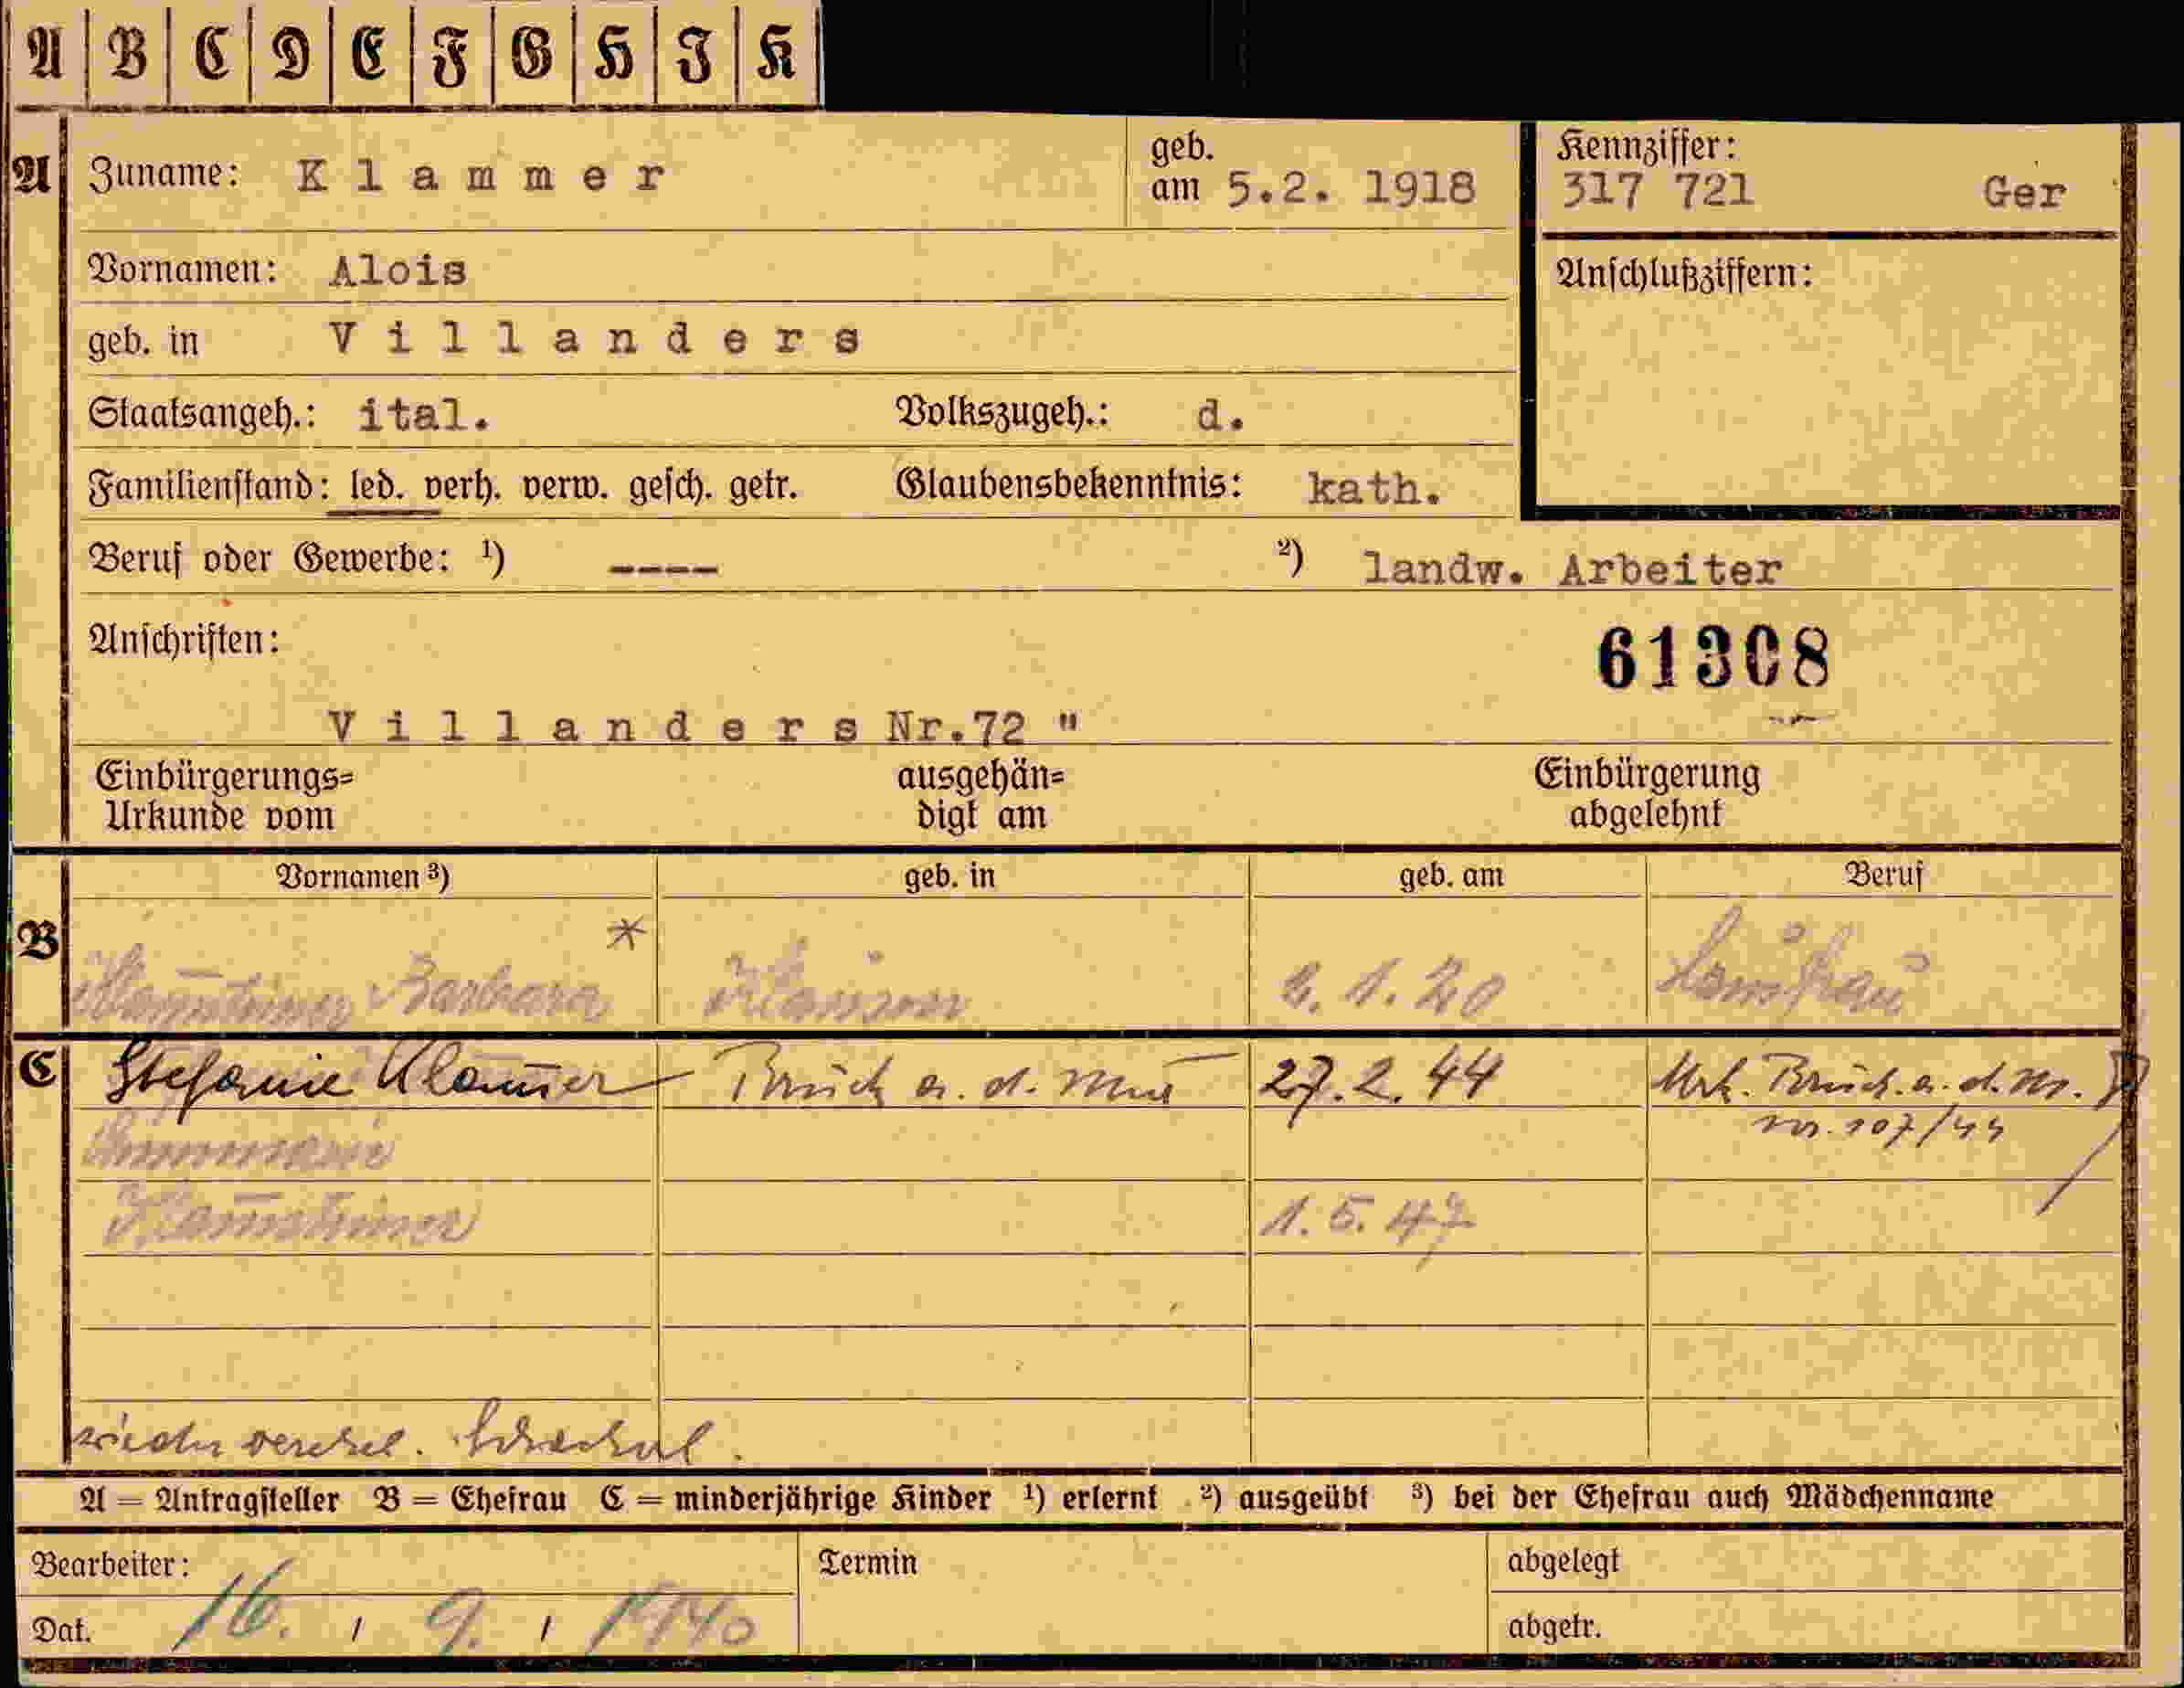 A B C D E F G H J K
A Zuname: Klammer geb. am 5.2. 1918 Kennziffer: 317 721 Ger
Vornamen: Alois Anschlußziffern:
geb. in Villanders
Staatsangeh.: ital. Volkszugeh.: d.
Familienstand: led. verh. verw. gesch. getr. Glaubensbekenntnis: kath.
Beruf oder Gewerbe: ¹) ---- ²) landw. Arbeiter
Anschriften: 61308
Villanders Nr.72 "
Einbürgerungs= ausgehän= Einbürgerung
Urkunde vom digt am abgelehnt
Vornamen ³) geb. in geb. am Beruf
B * Barbara 1. 20
C Stefanie Klammer Bruck a. d. Mur 27. 2. 44 Urk. Bruck a. d. M.
nr. 107/44
1. 5. 47
wieder verehel.
A = Antragsteller B = Ehefrau C = minderjährige Kinder ¹) erlernt ²) ausgeübt ³) bei der Ehefrau auch Mädchenname
Bearbeiter: Termin abgelegt
Dat. 16. / 9. / 1940 abgetr.